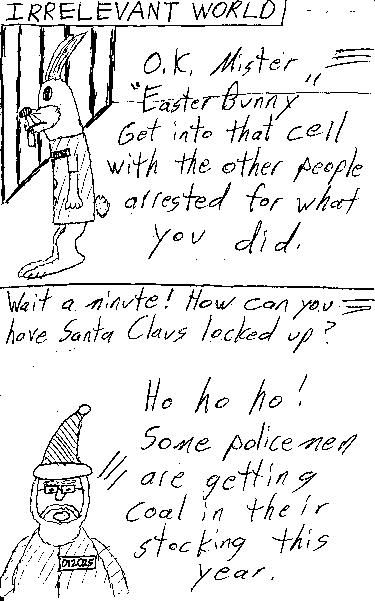 IRRELEVANT WORLD
O.K. Mister
"Easter Bunny"
Get into that cell
with the other people
arrested for what
you did.
Wait a minute! How can you
have Santa Claus locked up?
Ho ho ho!
Some policemen
are getting
coal in their
stocking this
year.